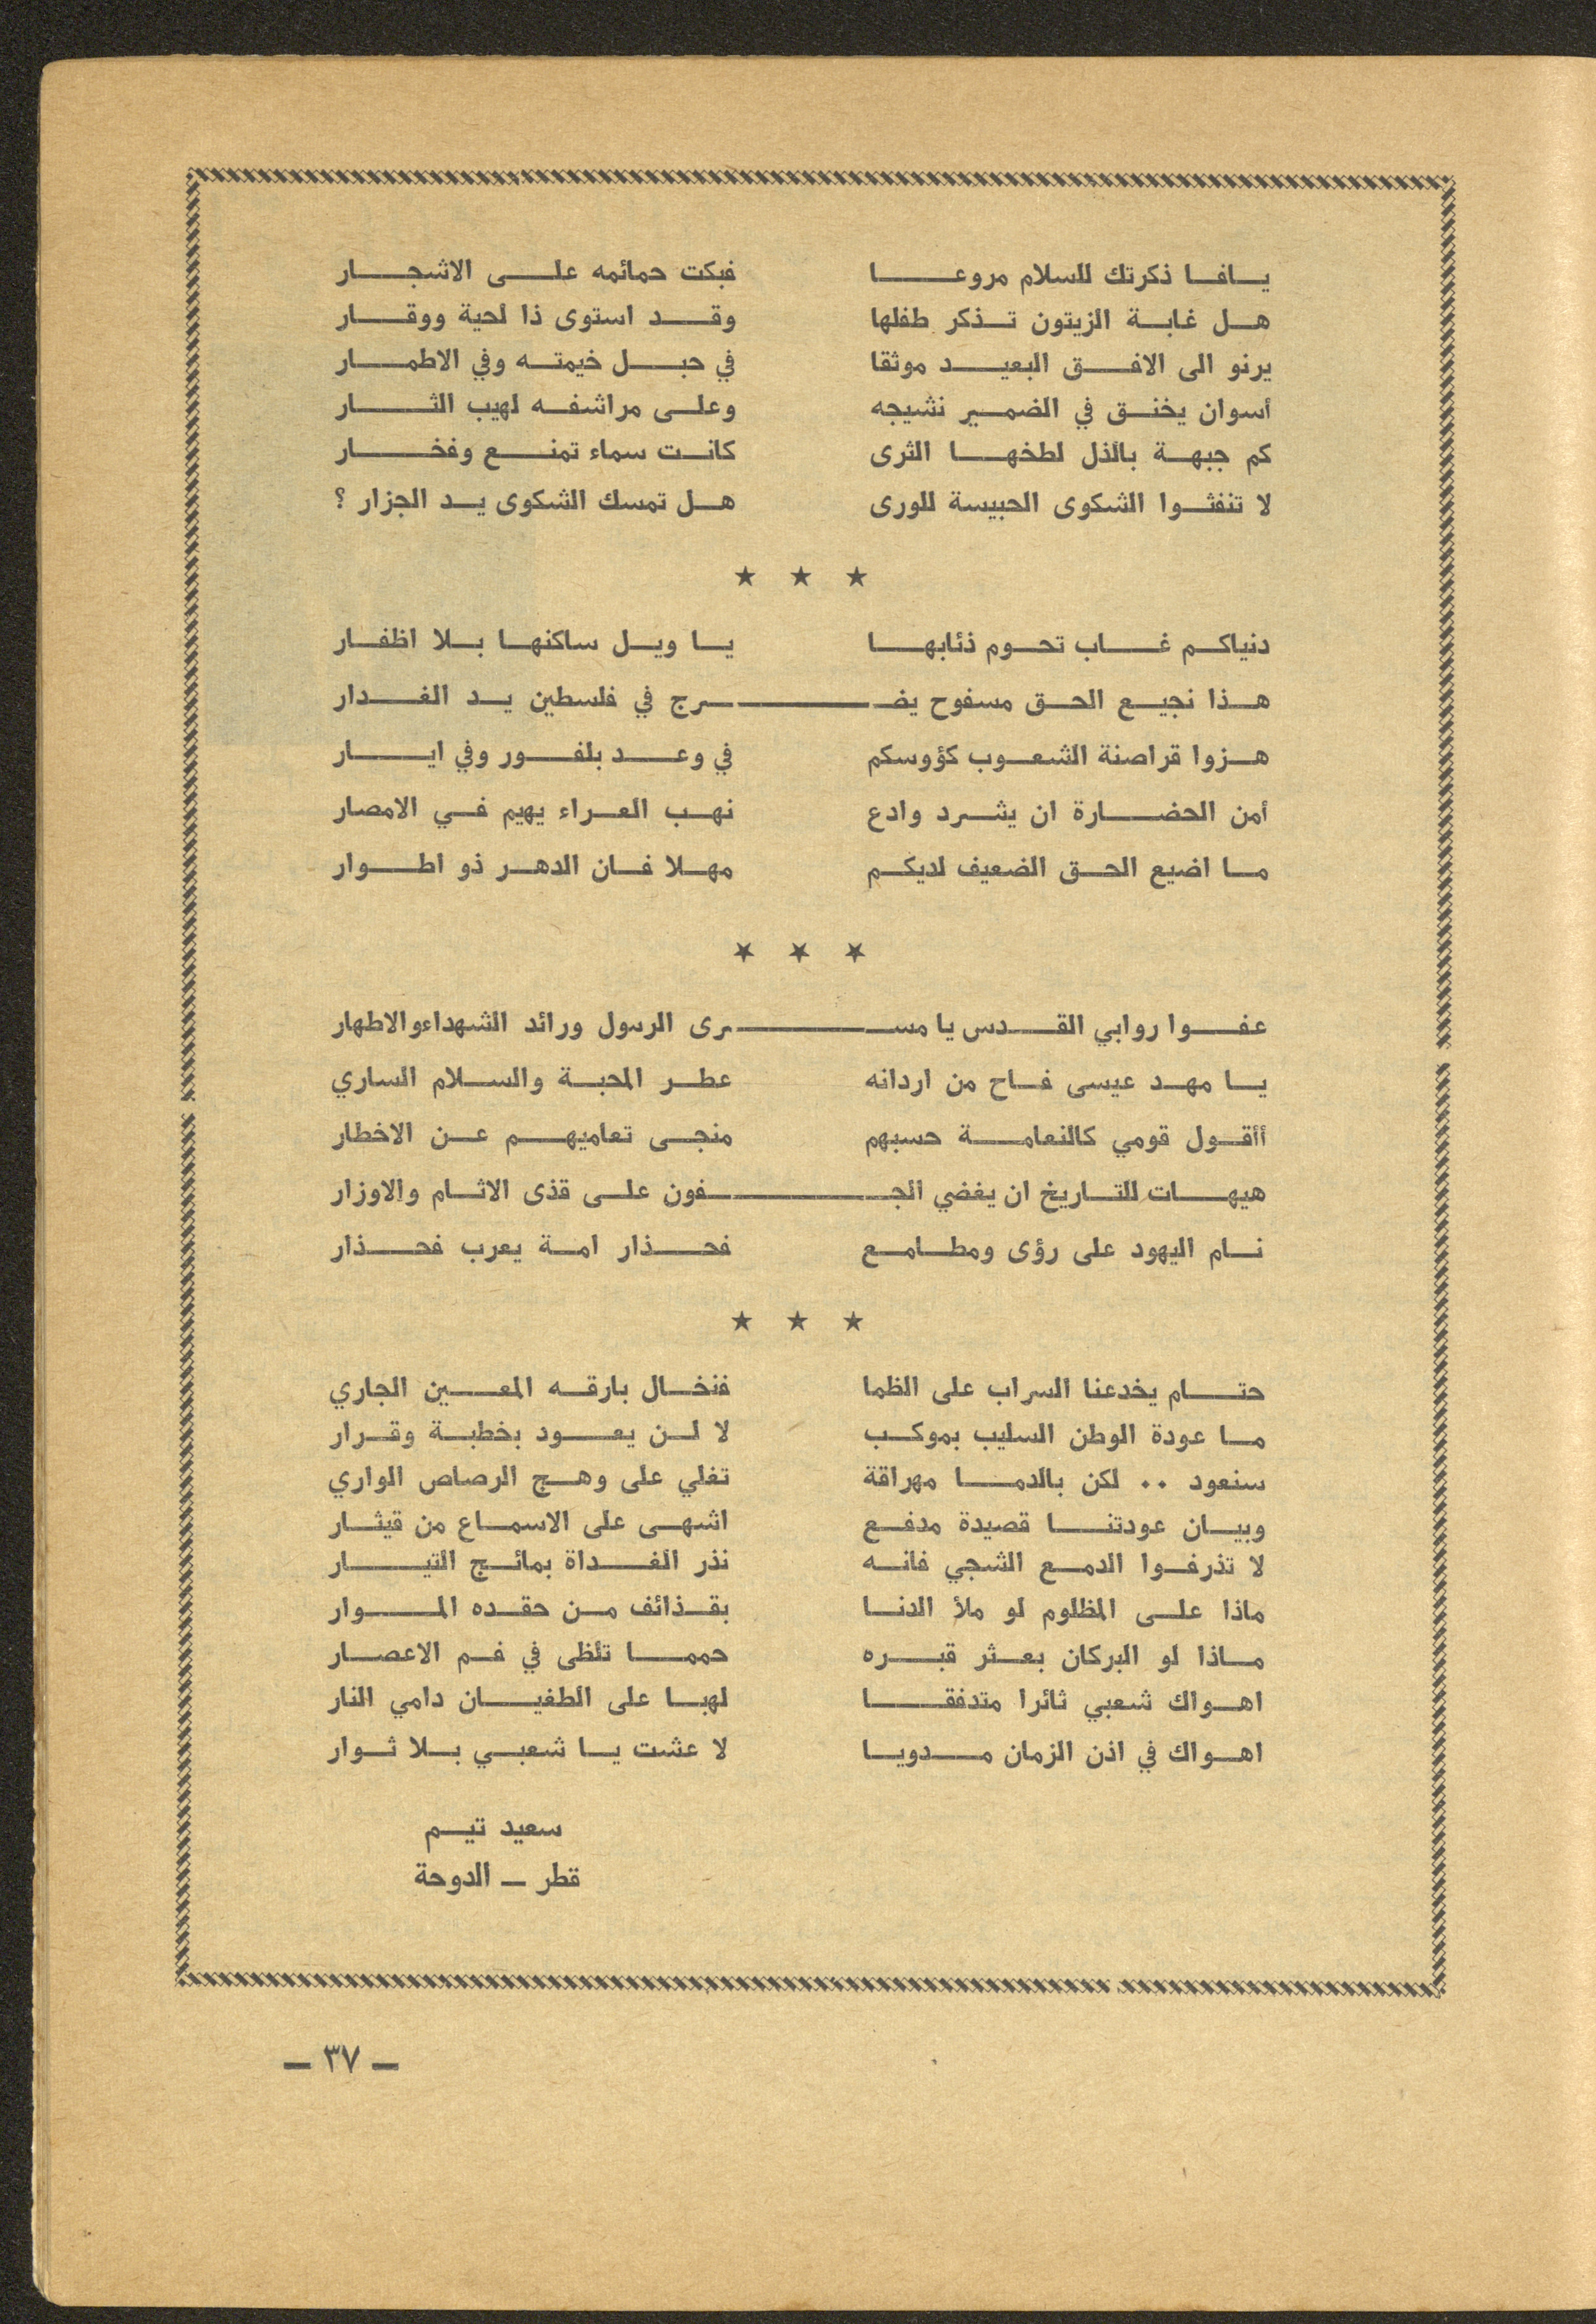 يافا ذكرتك للسلام مروعا فبكت حمائمه على الاشجار
هل غابة الزيتون تذكر طفلها وقد استوى ذا لحية ووقار
يرنو الى الافق البعيد موثقا في حبل خيمته وفي الاطمار
أسوان يخنق في الضمير نشيجه وعلى مراشفه لهيب الثار
كم جبهة بالذل لطخها الثرى كانت سماء تمنع وفخار
لا تنفثوا الشكوى الحبيسة للورى هل تمسك الشكوى يد الجزار ؟
★ ★ ★
دنياكم غاب تحوم ذئابها يا ويل ساكنها بلا اظفار
هذا نجيع الحق مسفوح يضرج في فلسطين يد الغدار
هزوا قراصنة الشعوب كؤوسكم في وعد بلفور وفي ايار
أمن الحضارة ان يشرد وادع نهب العراء يهيم في الامصار
ما اضيع الحق الضعيف لديكم مهلا فان الدهر ذو اطوار
★ ★ ★
عفوا روابي القدس يا مسرى الرسول ورائد الشهداء والاطهار
يا مهد عيسى فاح من اردانه عطر المحبة والسلام الساري
أأقول قومي كالنعامة حسبهم منجى تعاميهم عن الاخطار
هيهات للتاريخ ان يغضي الجفون على قذى الاثام والاوزار
نام اليهود على رؤى ومطامع فحذار امة يعرب فحذار
★ ★ ★
حتام يخدعنا السراب على الظما فنخال بارقه المعين الجاري
ما عودة الوطن السليب بموكب لا لن يعود بخطبة وقرار
سنعود .. لكن بالدما مهراقة تغلي على وهج الرصاص الواري
وبيان عودتنا قصيدة مدفع اشهى على الاسماع من قيثار
لا تذرفوا الدمع الشجي فانه نذر الغداة بمائج التيار
ماذا على المظلوم لو ملأ الدنا بقذائف من حقده الموار
ماذا لو البركان بعثر قبره حمما تلظى في فم الاعصار
اهواك شعبي ثائرا متدفقا لهبا على الطغيان دامي النار
اهواك في اذن الزمان مدويا لا عشت يا شعبي بلا ثوار
سعيد تيم
قطر ــ الدوحة
ــ ٣٧ ــ